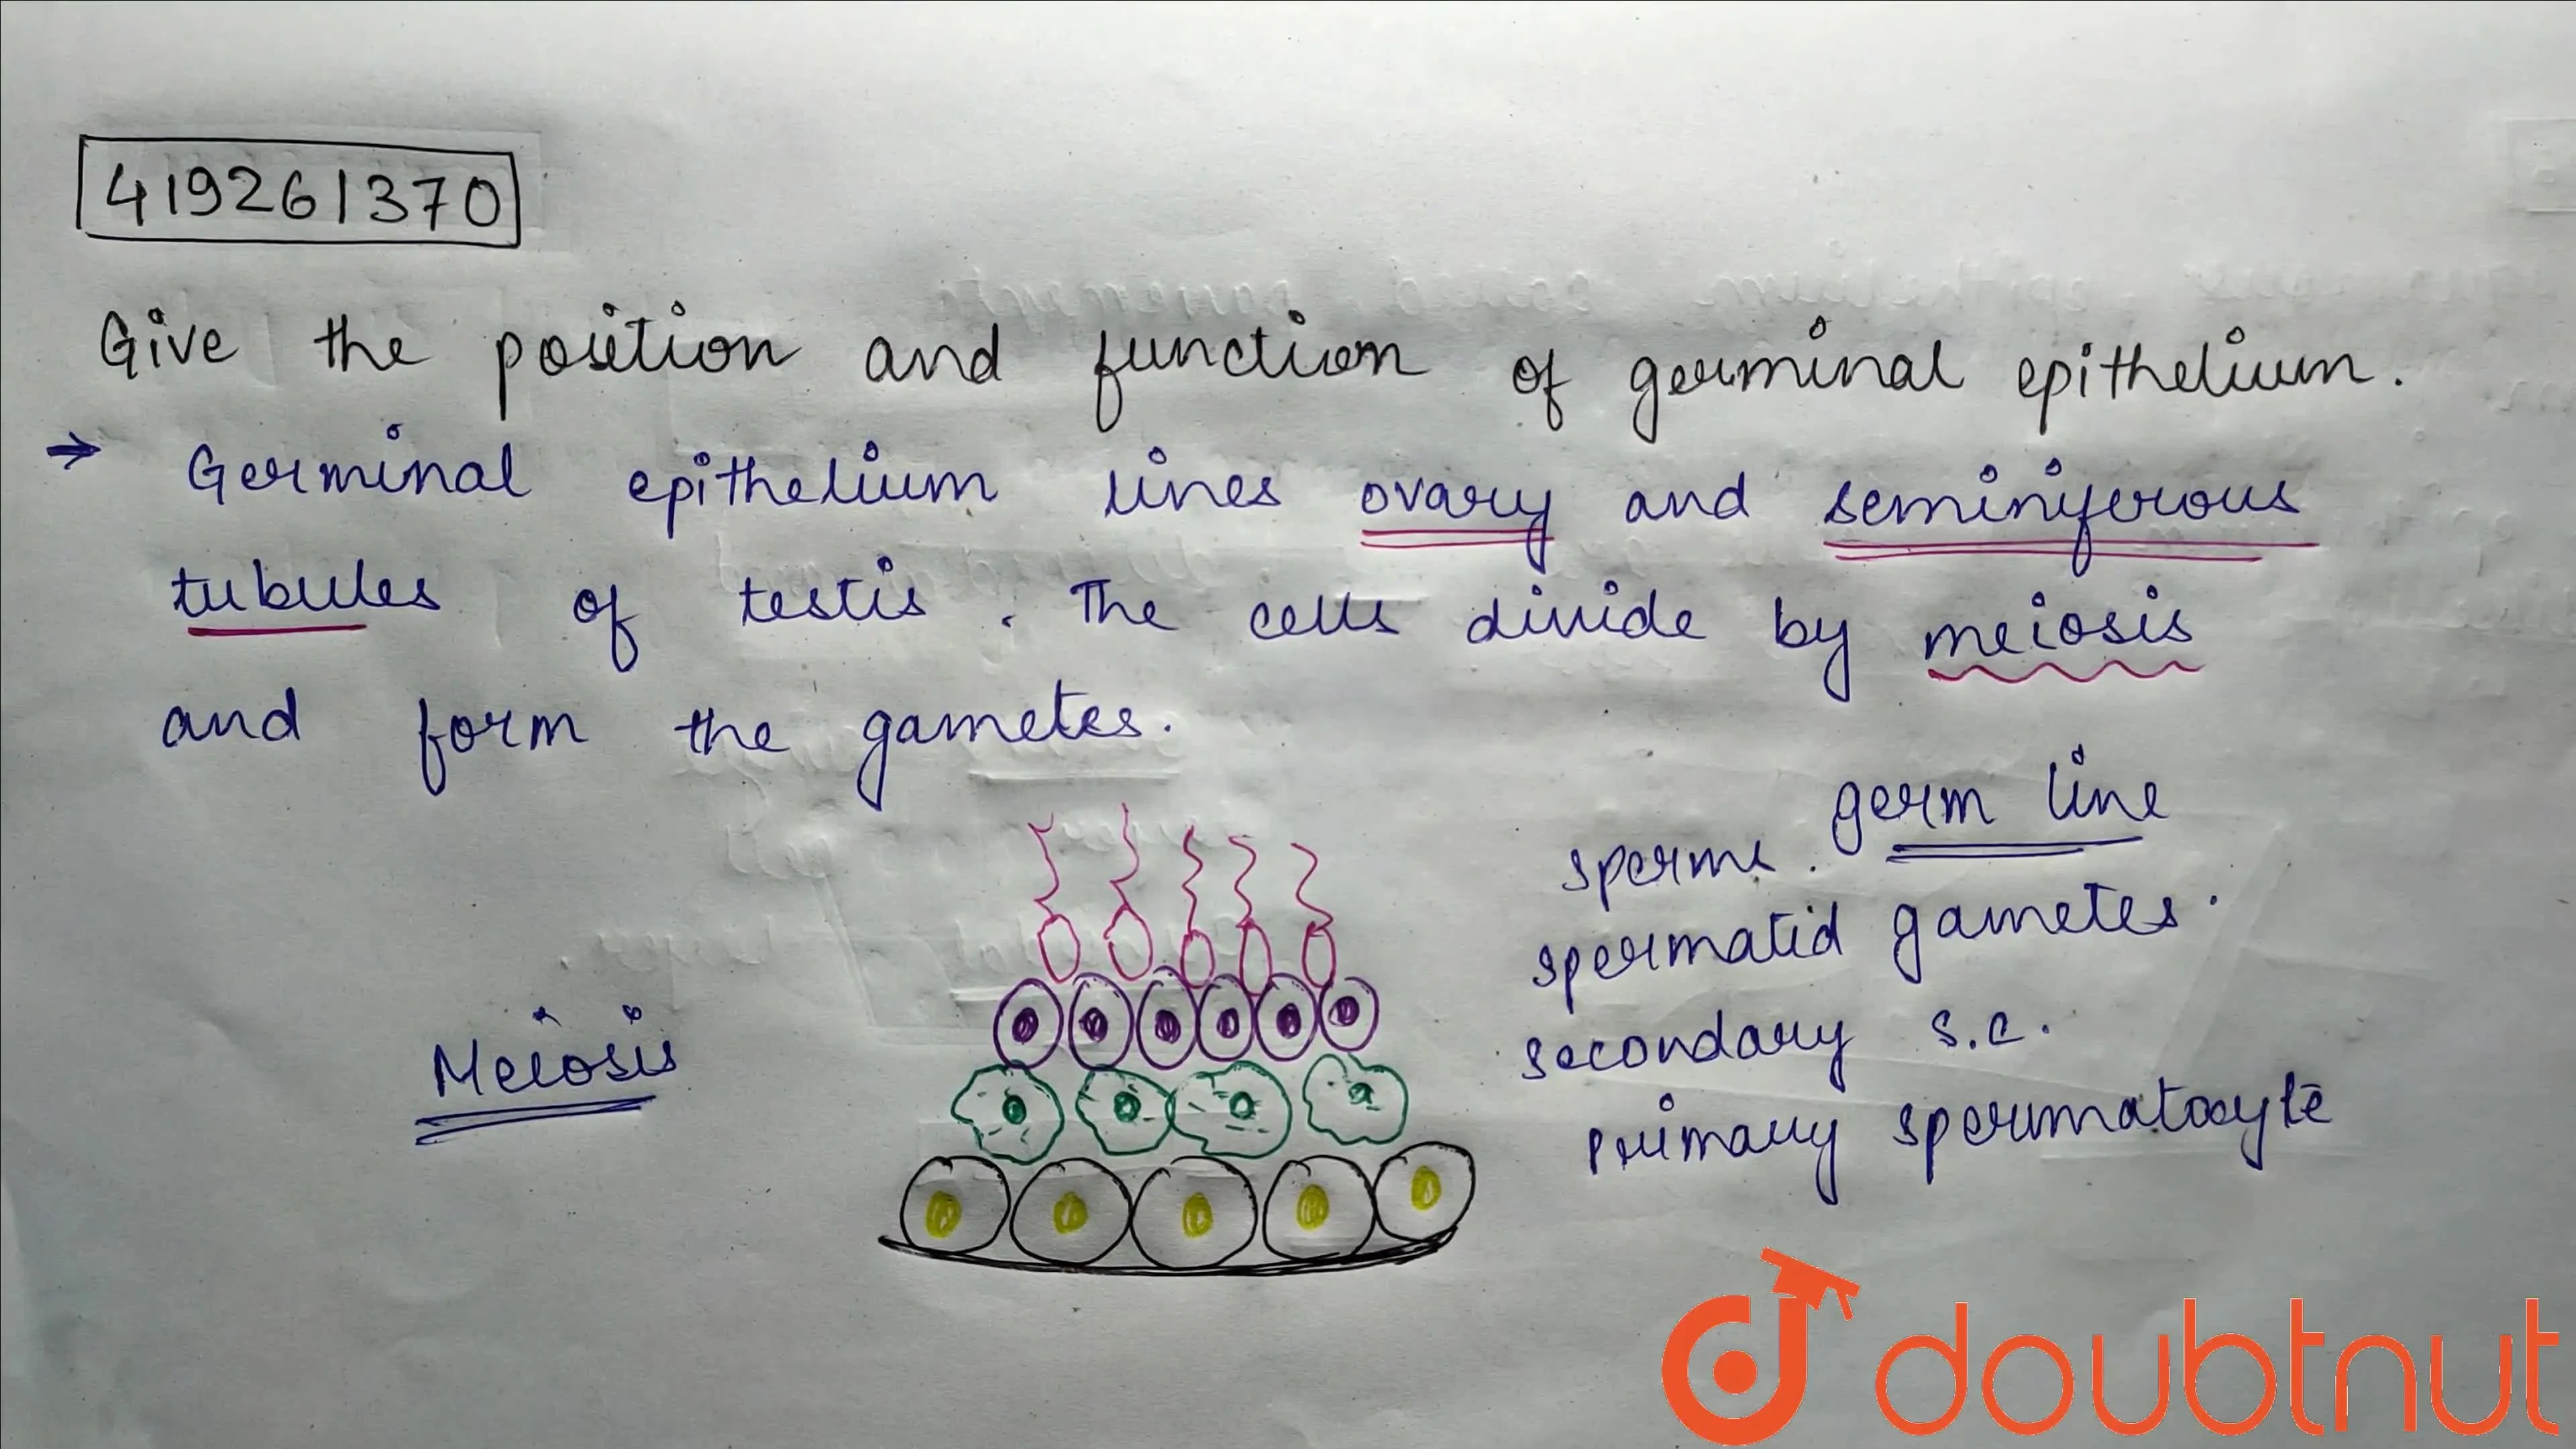 419261370
Give the position and function of germinal epithelium.
→ Germinal epithelium lines ovary and seminiferous
tubules of testis. The cells divide by meiosis
and form the gametes.
germ line
sperms.
spermatid gametes.
secondary s.c.
primary spermatocyte
Meiosis
doubtnut